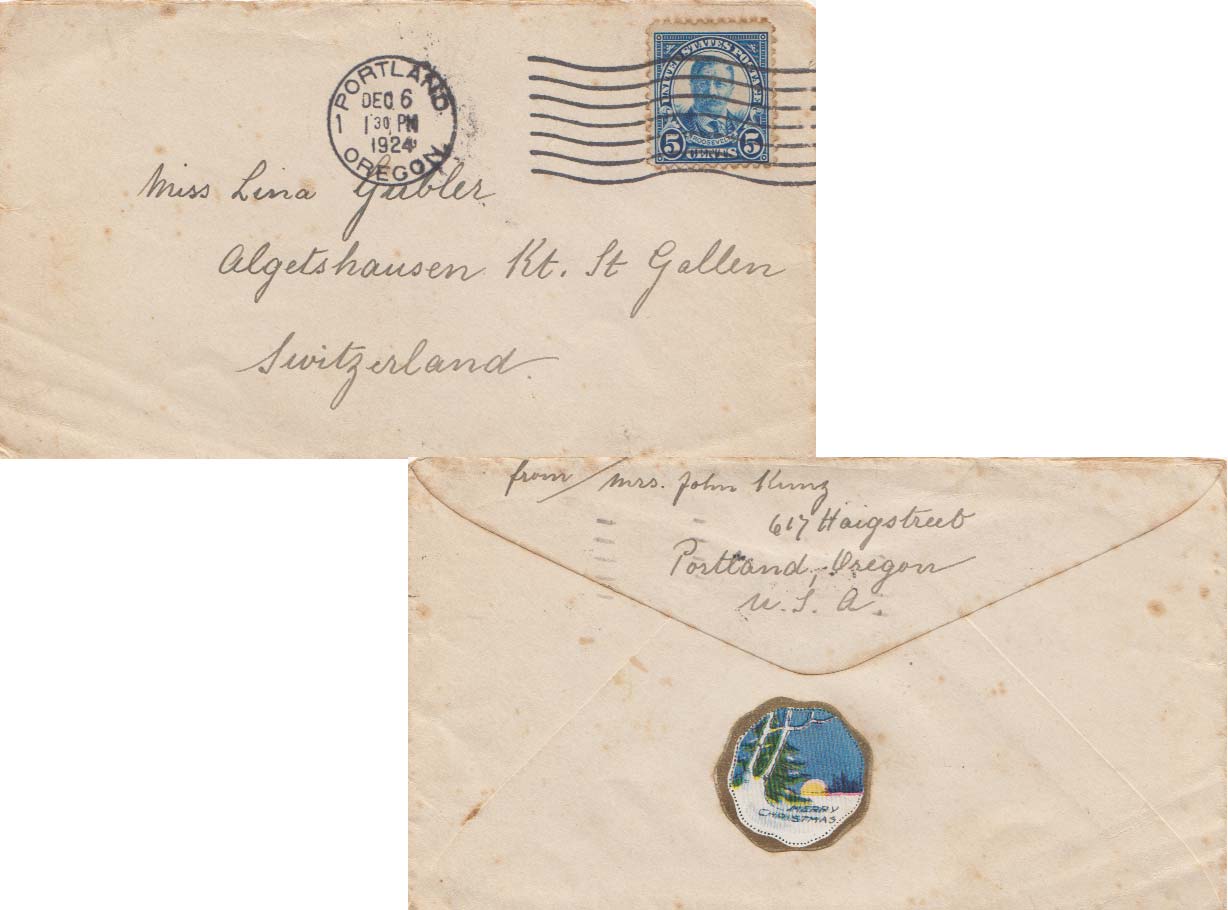 PORTLAND
DEC 6
1 30 PM
1924
OREGON
1
UNITED STATES POSTAGE
ROOSEVELT
5 CENTS 5
Miss Lina Gubler
Algetshausen Kt. St Gallen
Switzerland.
from / Mrs. John Kunz
617 Haigstreet
Portland, Oregon
U. S. A.
MERRY
CHRISTMAS